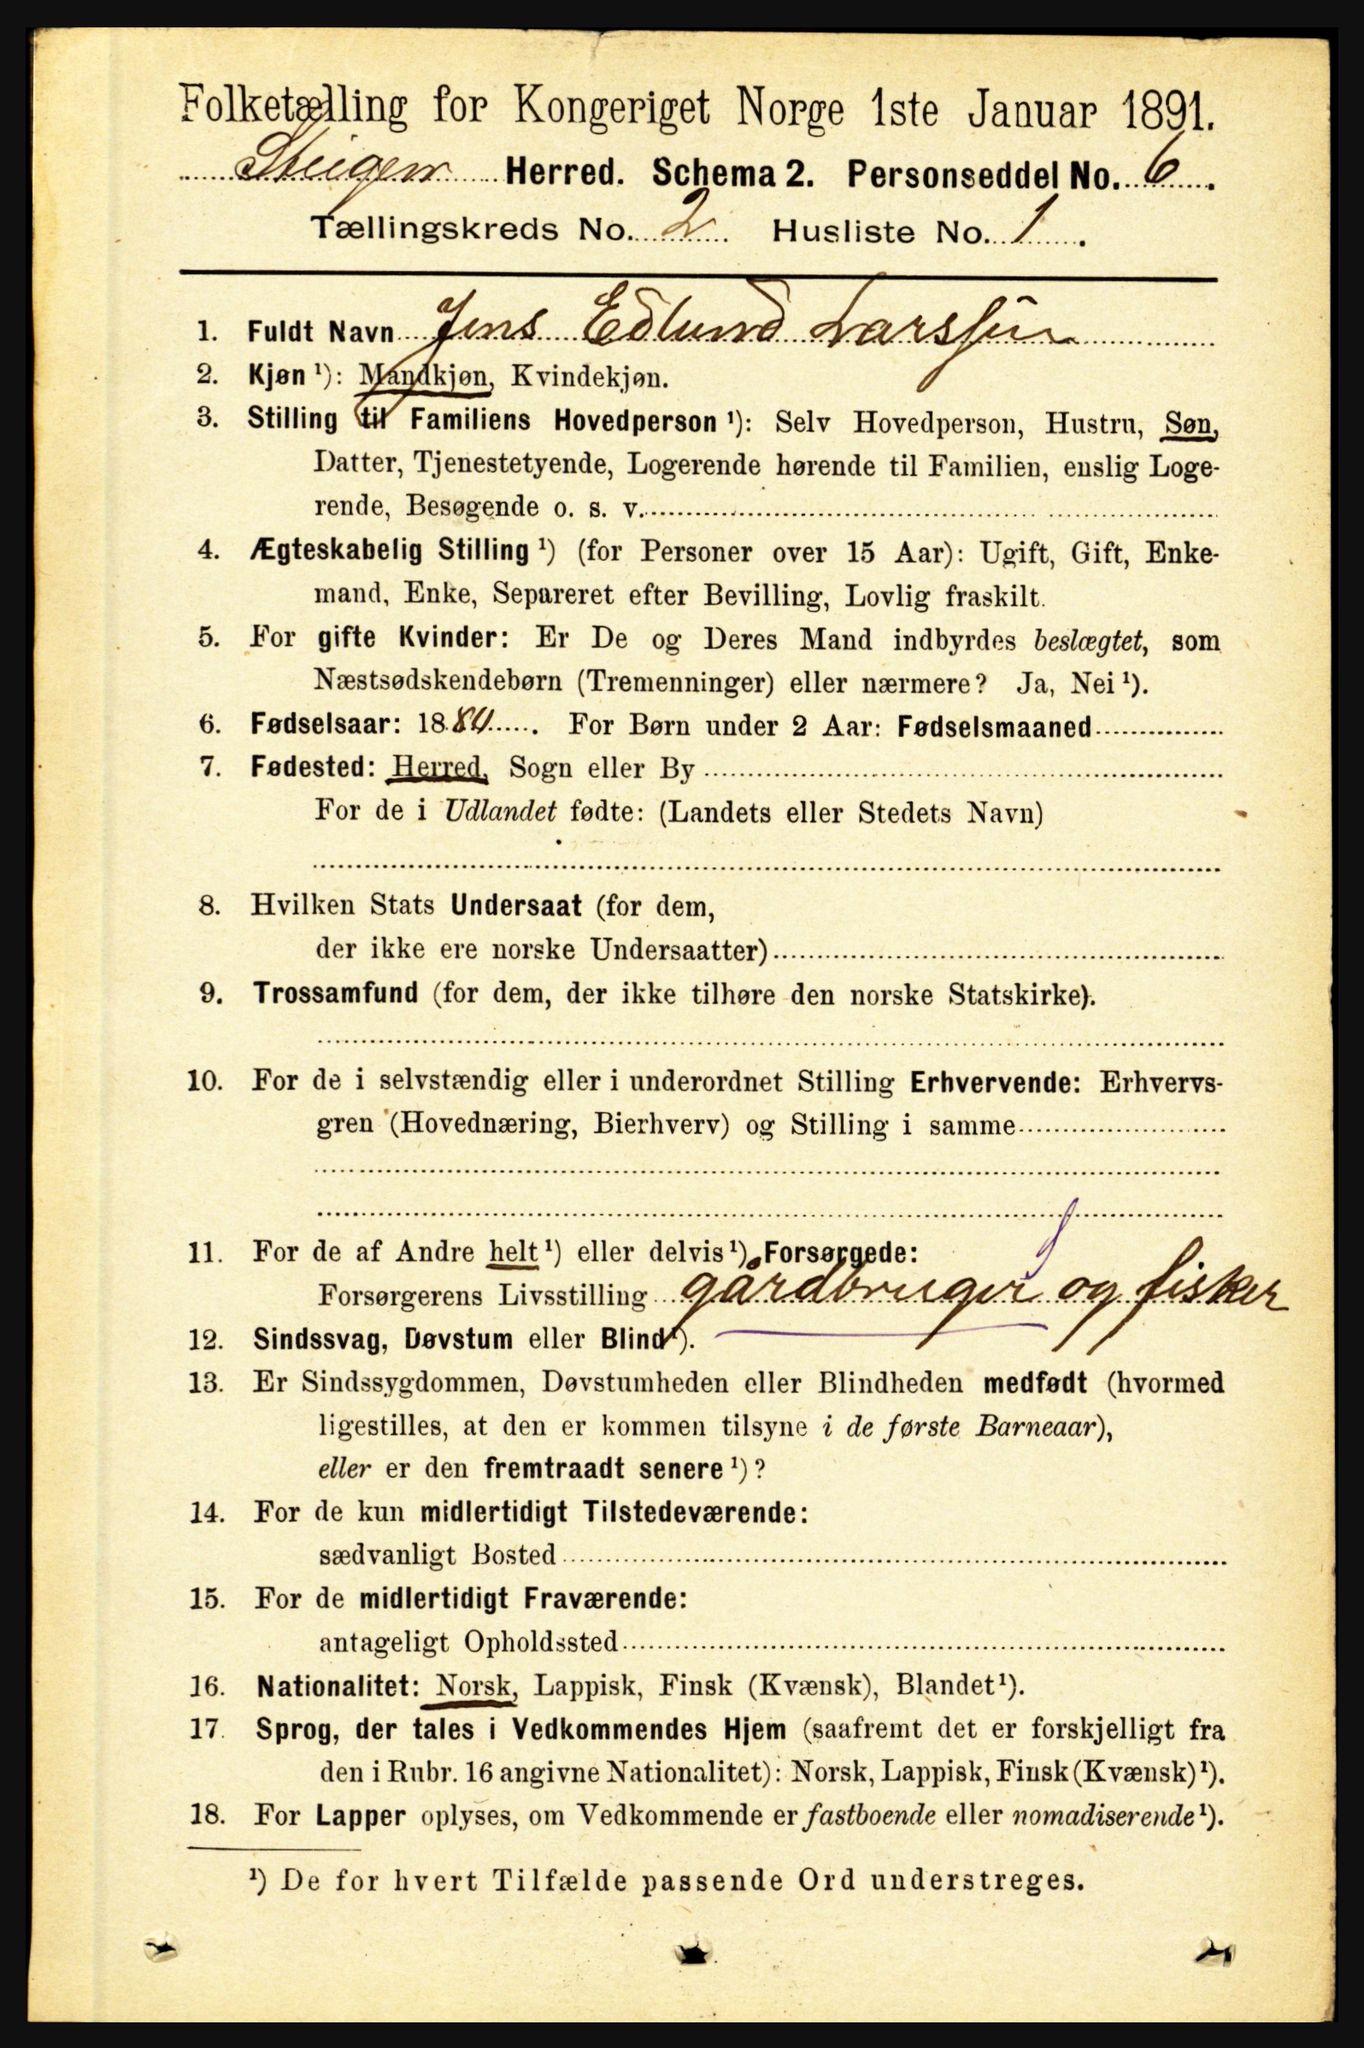 Folketælling for Kongeriget Norge 1ste Januar 1891.
Steigen Herred. Schema 2. Personseddel No. 6.
Tællingskreds No. 2 Husliste No. 1.
1. Fuldt Navn Jens Edlund Larssen
2. Kjøn ¹): Mandkjøn, Kvindekjøn.
3. Stilling til Familiens Hovedperson ¹): Selv Hovedperson, Hustru, Søn,
Datter, Tjenestetyende, Logerende hørende til Familien, enslig Loge-
rende, Besøgende o. s. v.
4. Ægteskabelig Stilling ¹) (for Personer over 15 Aar): Ugift, Gift, Enke-
mand, Enke, Separeret efter Bevilling, Lovlig fraskilt.
5. For gifte Kvinder: Er De og Deres Mand indbyrdes beslægtet, som
Næstsødskendebørn (Tremenninger) eller nærmere? Ja, Nei ¹).
6. Fødselsaar: 1884. For Børn under 2 Aar: Fødselsmaaned
7. Fødested: Herred, Sogn eller By
For de i Udlandet fødte: (Landets eller Stedets Navn)
8. Hvilken Stats Undersaat (for dem,
der ikke ere norske Undersaatter)
9. Trossamfund (for dem, der ikke tilhøre den norske Statskirke).
10. For de i selvstændig eller i underordnet Stilling Erhvervende: Erhvervs-
gren (Hovednæring, Bierhverv) og Stilling i samme
11. For de af Andre helt ¹) eller delvis ¹) Forsørgede:
Forsørgerens Livsstilling gårdbruger og fisker
12. Sindssvag, Døvstum eller Blind ¹).
13. Er Sindssygdommen, Døvstumheden eller Blindheden medfødt (hvormed
ligestilles, at den er kommen tilsyne i de første Barneaar),
eller er den fremtraadt senere ¹)?
14. For de kun midlertidigt Tilstedeværende:
sædvanligt Bosted
15. For de midlertidigt Fraværende:
antageligt Opholdssted
16. Nationalitet: Norsk, Lappisk, Finsk (Kvænsk), Blandet ¹).
17. Sprog, der tales i Vedkommendes Hjem (saafremt det er forskjelligt fra
den i Rubr. 16 angivne Nationalitet): Norsk, Lappisk, Finsk (Kvænsk) ¹).
18. For Lapper oplyses, om Vedkommende er fastboende eller nomadiserende ¹).
¹) De for hvert Tilfælde passende Ord understreges.